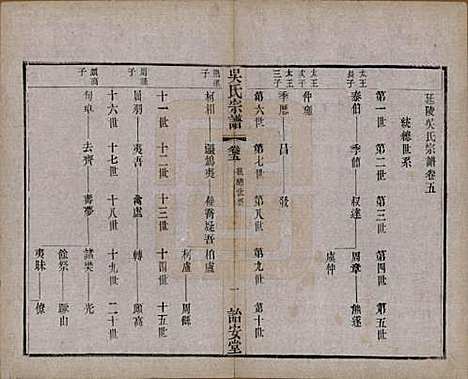 延陵吳氏宗譜卷五
統總世系
第一世 第二世 第三世 第四世 第五世
太王長子
泰伯 季簡 叔達 周章 熊遂
虞仲
太王次子
仲雍
太王三子
季歷 昌 發
第六世 第七世 第八世 第九世 第十世
熊遂子
柯相 彊鳩夷 餘喬疑吾 柯盧 周繇
吳氏宗譜 卷五 統總世系 一 詒安堂
十一世 十二世 十三世 十四世 十五世
周繇子
屈羽 夷吾 禽處 轉 頗高
十六世 十七世 十八世 十九世 二十世
頗高子
句卑 去齊 壽夢 諸樊 光
餘祭
夷昧 僚